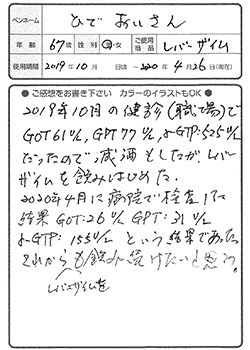 ペンネーム ひで おじさん
年齢 67歳 性別 男・女 ご使用商品 レバーザイム
使用期間 2019年10月 日頃 〜 2020年4月26日(現在)
●ご感想をお書き下さい カラーのイラストもOK●
2019年10月の健診(職場)で
GOT61U/L, GPT77U/L, γ-GTP:525U/L
だったので減酒もしたが、レバー
ザイムを飲みはじめた。
2020年4月に病院で検査した
結果 GOT:26U/L GPT:31U/L
γ-GTP: 155U/L という結果であった。
これからも飲み続けたいと思う。
レバーザイムを